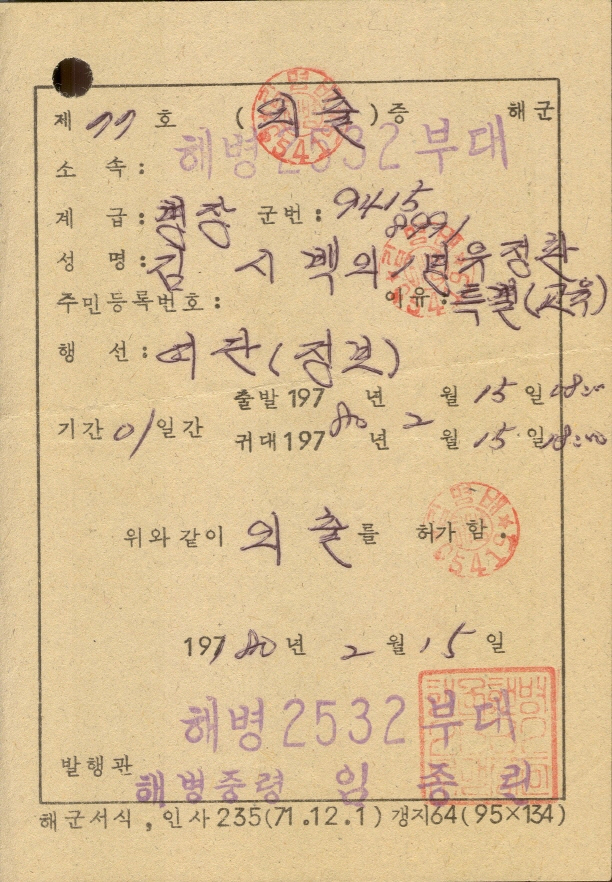 제 77 호 (외출)증 해군
소 속 : 해병 2532 부대
계 급 : 병장 군번 : 9415
성 명 : 김 시 백외
주민등록번호 : 이유 : 특별(교육)
행 선 :
출발 197 년 월 15 일
기간 01 일간
귀대 197 80 년 2 월 15 일 18:00
위와 같이 외 출 를 허가 함.
197 80 년 2 월 15 일
해병 2532 부대
발행관
해병중령 임 종
해군서식 , 인사 235(71.12.1) 갱지64(95×134)